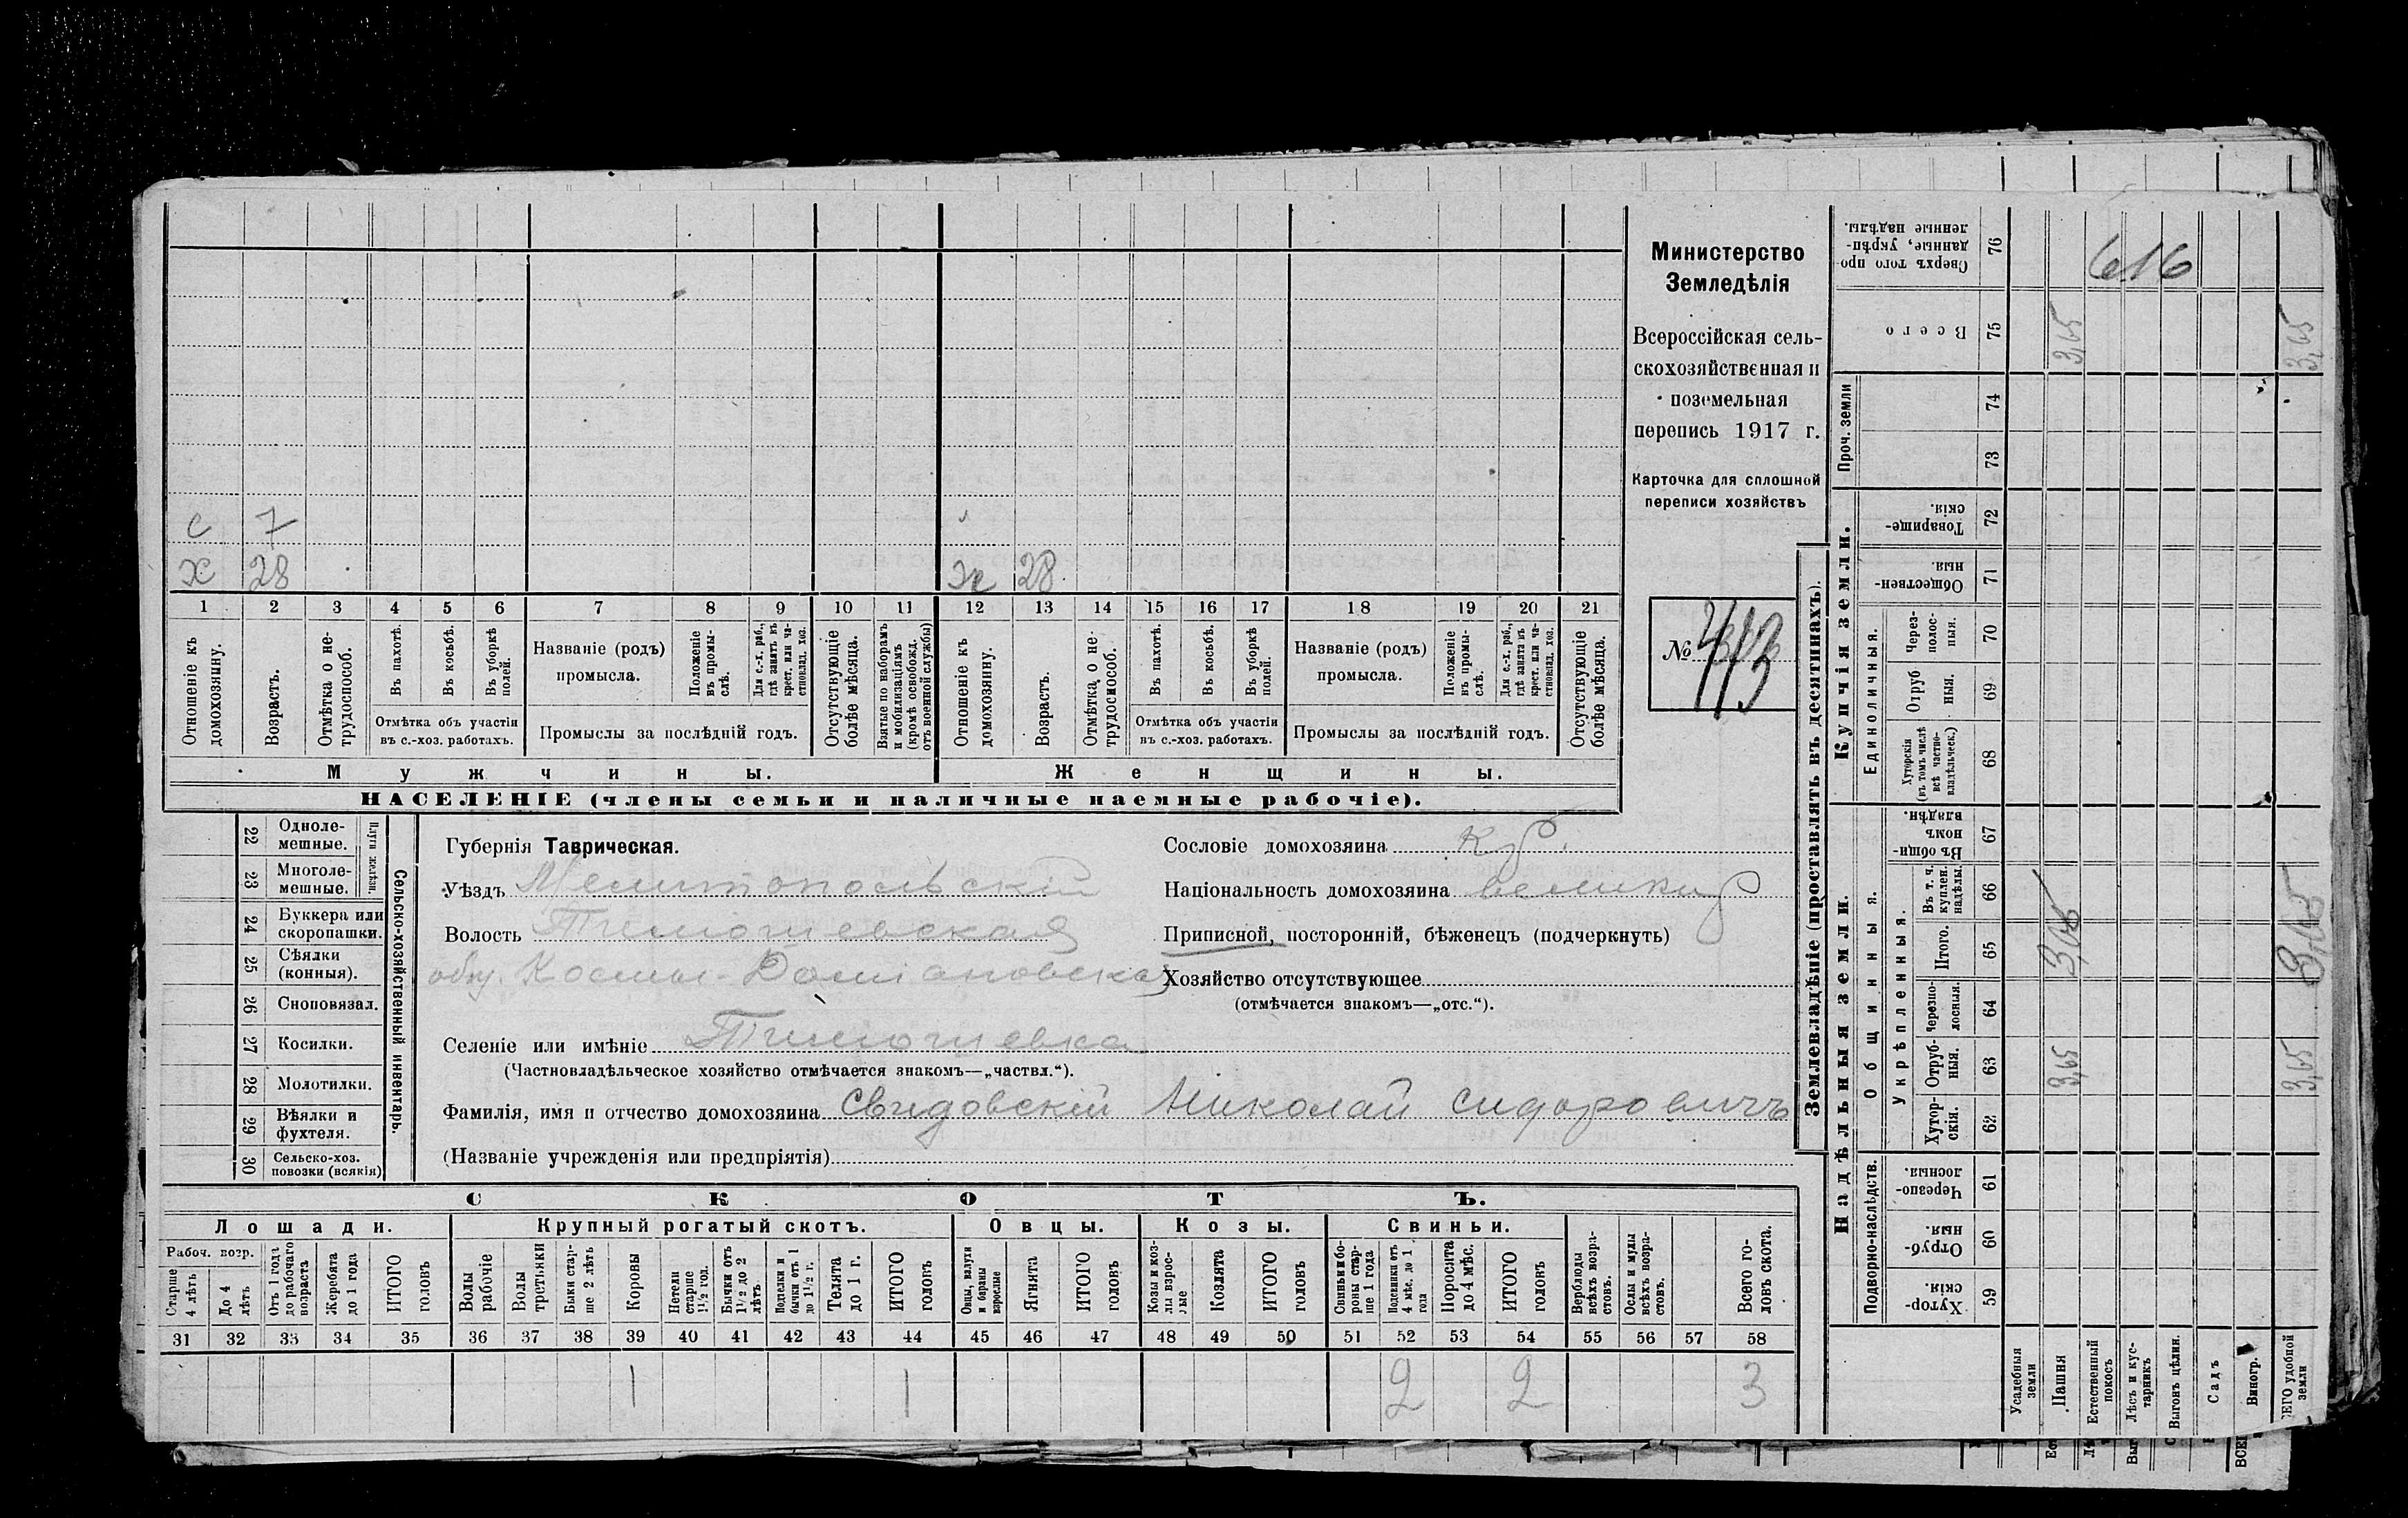 616
Министерство
Земледѣлія
Всероссійская сель-
скохозяйственная и
поземельная
перепись 1917 г.
Карточка для сплошной
переписи хозяйствъ
№ 413
с 7
х 28 ж 28
1 2 3 4 5 6 7 8 9 10 11 12 13 14 15 16 17 18 19 20 21
Отношеніе къ домохозяину.
Возрастъ.
Отмѣтка о не-трудоспособ.
Въ пахотѣ.
Въ косьбѣ.
Въ уборкѣ полей.
Отмѣтка объ участіи въ с.-хоз. работахъ.
Названіе (родъ) промысла.
Положеніе въ промы-слѣ.
Для с.-х. раб., гдѣ занятъ въ крест. или ча-стновлад. хоз.
Промыслы за послѣдній годъ.
Отсутствующіе болѣе мѣсяца.
Взятые по наборамъ и мобилизаціямъ (кромѣ освобожд. отъ военной службы)
Отношеніе къ домохозяину.
Возрастъ.
Отмѣтка о не-трудоспособ.
Въ пахотѣ.
Въ косьбѣ.
Въ уборкѣ полей.
Отмѣтка объ участіи въ с.-хоз. работахъ.
Названіе (родъ) промысла.
Положеніе въ промы-слѣ.
Для с.-х. раб., гдѣ занята въ крест. или ча-стновлад. хоз.
Промыслы за послѣдній годъ.
Отсутствующіе болѣе мѣсяца.
Мужчины. Женщины.
НАСЕЛЕНІЕ (члены семьи и наличные наемные рабочіе).
Сельско-хозяйственный инвентарь.
Плуги желѣзн.
22 Одноле-мешные.
23 Многоле-мешные.
24 Буккера или скоропашки.
25 Сѣялки (конныя).
26 Сноповязал.
27 Косилки.
28 Молотилки.
29 Вѣялки и фухтеля.
30 Сельско-хоз. повозки (всякія)
Губернія Таврическая.
Уѣздъ Мелитопольскій
Волость Тимошевская
общ. Космы-Даміановская
Селеніе или имѣніе Тимошевка
(Частновладѣльческое хозяйство отмѣчается знакомъ—„частвл.“).
Фамилія, имя и отчество домохозяина Свидовскій Николай Сидоровичъ
(Названіе учрежденія или предпріятія)
Сословіе домохозяина кр.
Національность домохозяина великор
Приписной, посторонній, бѣженецъ (подчеркнуть)
Хозяйство отсутствующее
(отмѣчается знакомъ—„отс.“).
СКОТЪ.
Лошади. Крупный рогатый скотъ. Овцы. Козы. Свиньи.
Рабоч. возр.
Старше 4 лѣтъ
До 4 лѣтъ
Отъ 1 года до рабочаго возраста
Жеребята до 1 года
ИТОГО головъ
Волы рабочіе
Волы третьяки
Быки стар-ше 2 лѣтъ
Коровы
Нетели старше 1½ год.
Бычки отъ 1½ до 2 лѣтъ
Подтелки и бычки отъ 1 до 1½ г.
Телята до 1 г.
ИТОГО головъ
Овцы, валухи и бараны взрослые
Ягнята
ИТОГО головъ
Козы и коз-лы взрос-лые
Козлята
ИТОГО головъ
Свиньи и бо-ровы стар-ше 1 года
Подсвинки отъ 4 мѣс. до 1 года
Поросята до 4 мѣс.
ИТОГО головъ
Верблюды всѣхъ возра-стовъ.
Ослы и мулы всѣхъ возра-стовъ.
Всего го-ловъ скота.
31 32 33 34 35 36 37 38 39 40 41 42 43 44 45 46 47 48 49 50 51 52 53 54 55 56 57 58
1 1 2 2 3
Землевладѣніе (проставлять въ десятинахъ).
Надѣльныя земли. Купчія земли.
Подворно-наслѣдств.
Общинныя.
Укрѣпленныя.
Единоличныя.
Проч. земли
59 Хутор-скія.
60 Отруб-ныя.
61 Черезпо-лосныя.
62 Хутор-скія.
63 Отруб-ныя. 3,65 3,65
64 Черезпо-лосныя.
65 Итого. 3,65 3,65
66 Въ т. ч. куплен. надѣлы.
67 Въ общин-номъ владѣн.
68 Хуторскія (въ томъ числѣ всѣ частно-владѣльческ.)
69 Отруб ныя.
70 Через-полос-ныя.
71 Обществен-ныя.
72 Товарище-скія.
73
74
75 Всего 3,65 3,65
76 Сверхъ того про-данные, укрѣп-ленные надѣлы.
Усадебныя земли
Пашня
Естественный покосъ
Лѣсъ и кус-тарникъ
Выгонъ цѣлин.
Садъ
Виногр.
ЕГО удобной земли